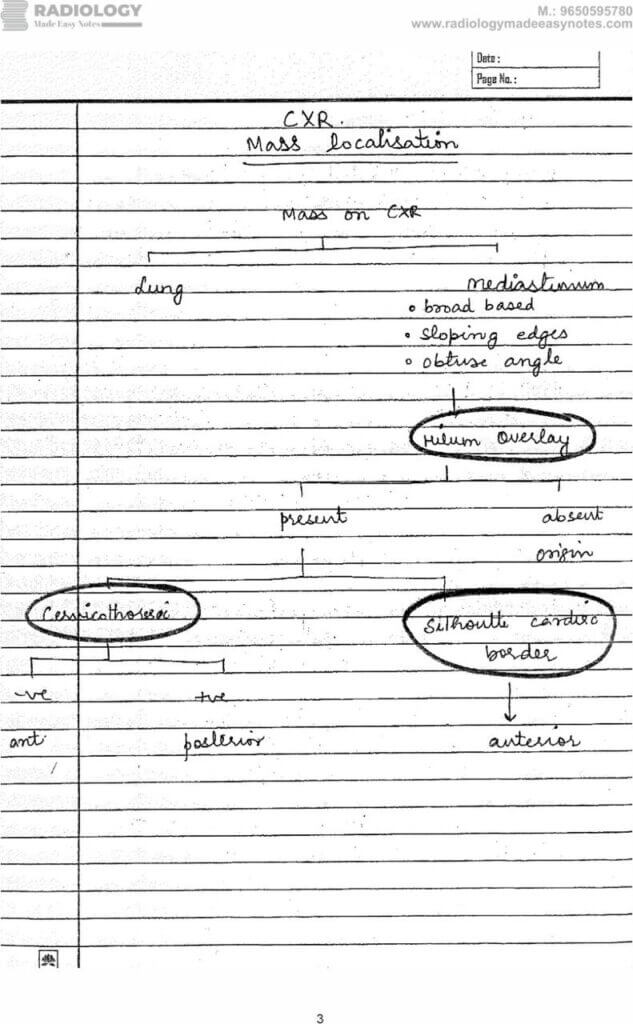 RADIOLOGY
Made Easy Notes
M.: 9650595780
www.radiologymadeeasynotes.com
Date :
Page No. :
CXR.
Mass localisation
Mass on CXR
Lung mediastinum
• broad based
• sloping edges
• obtuse angle
Hilum Overlay
present absent
origin
Silhoutte cardiac
border
-ve +ve
ant. posterior anterior
3